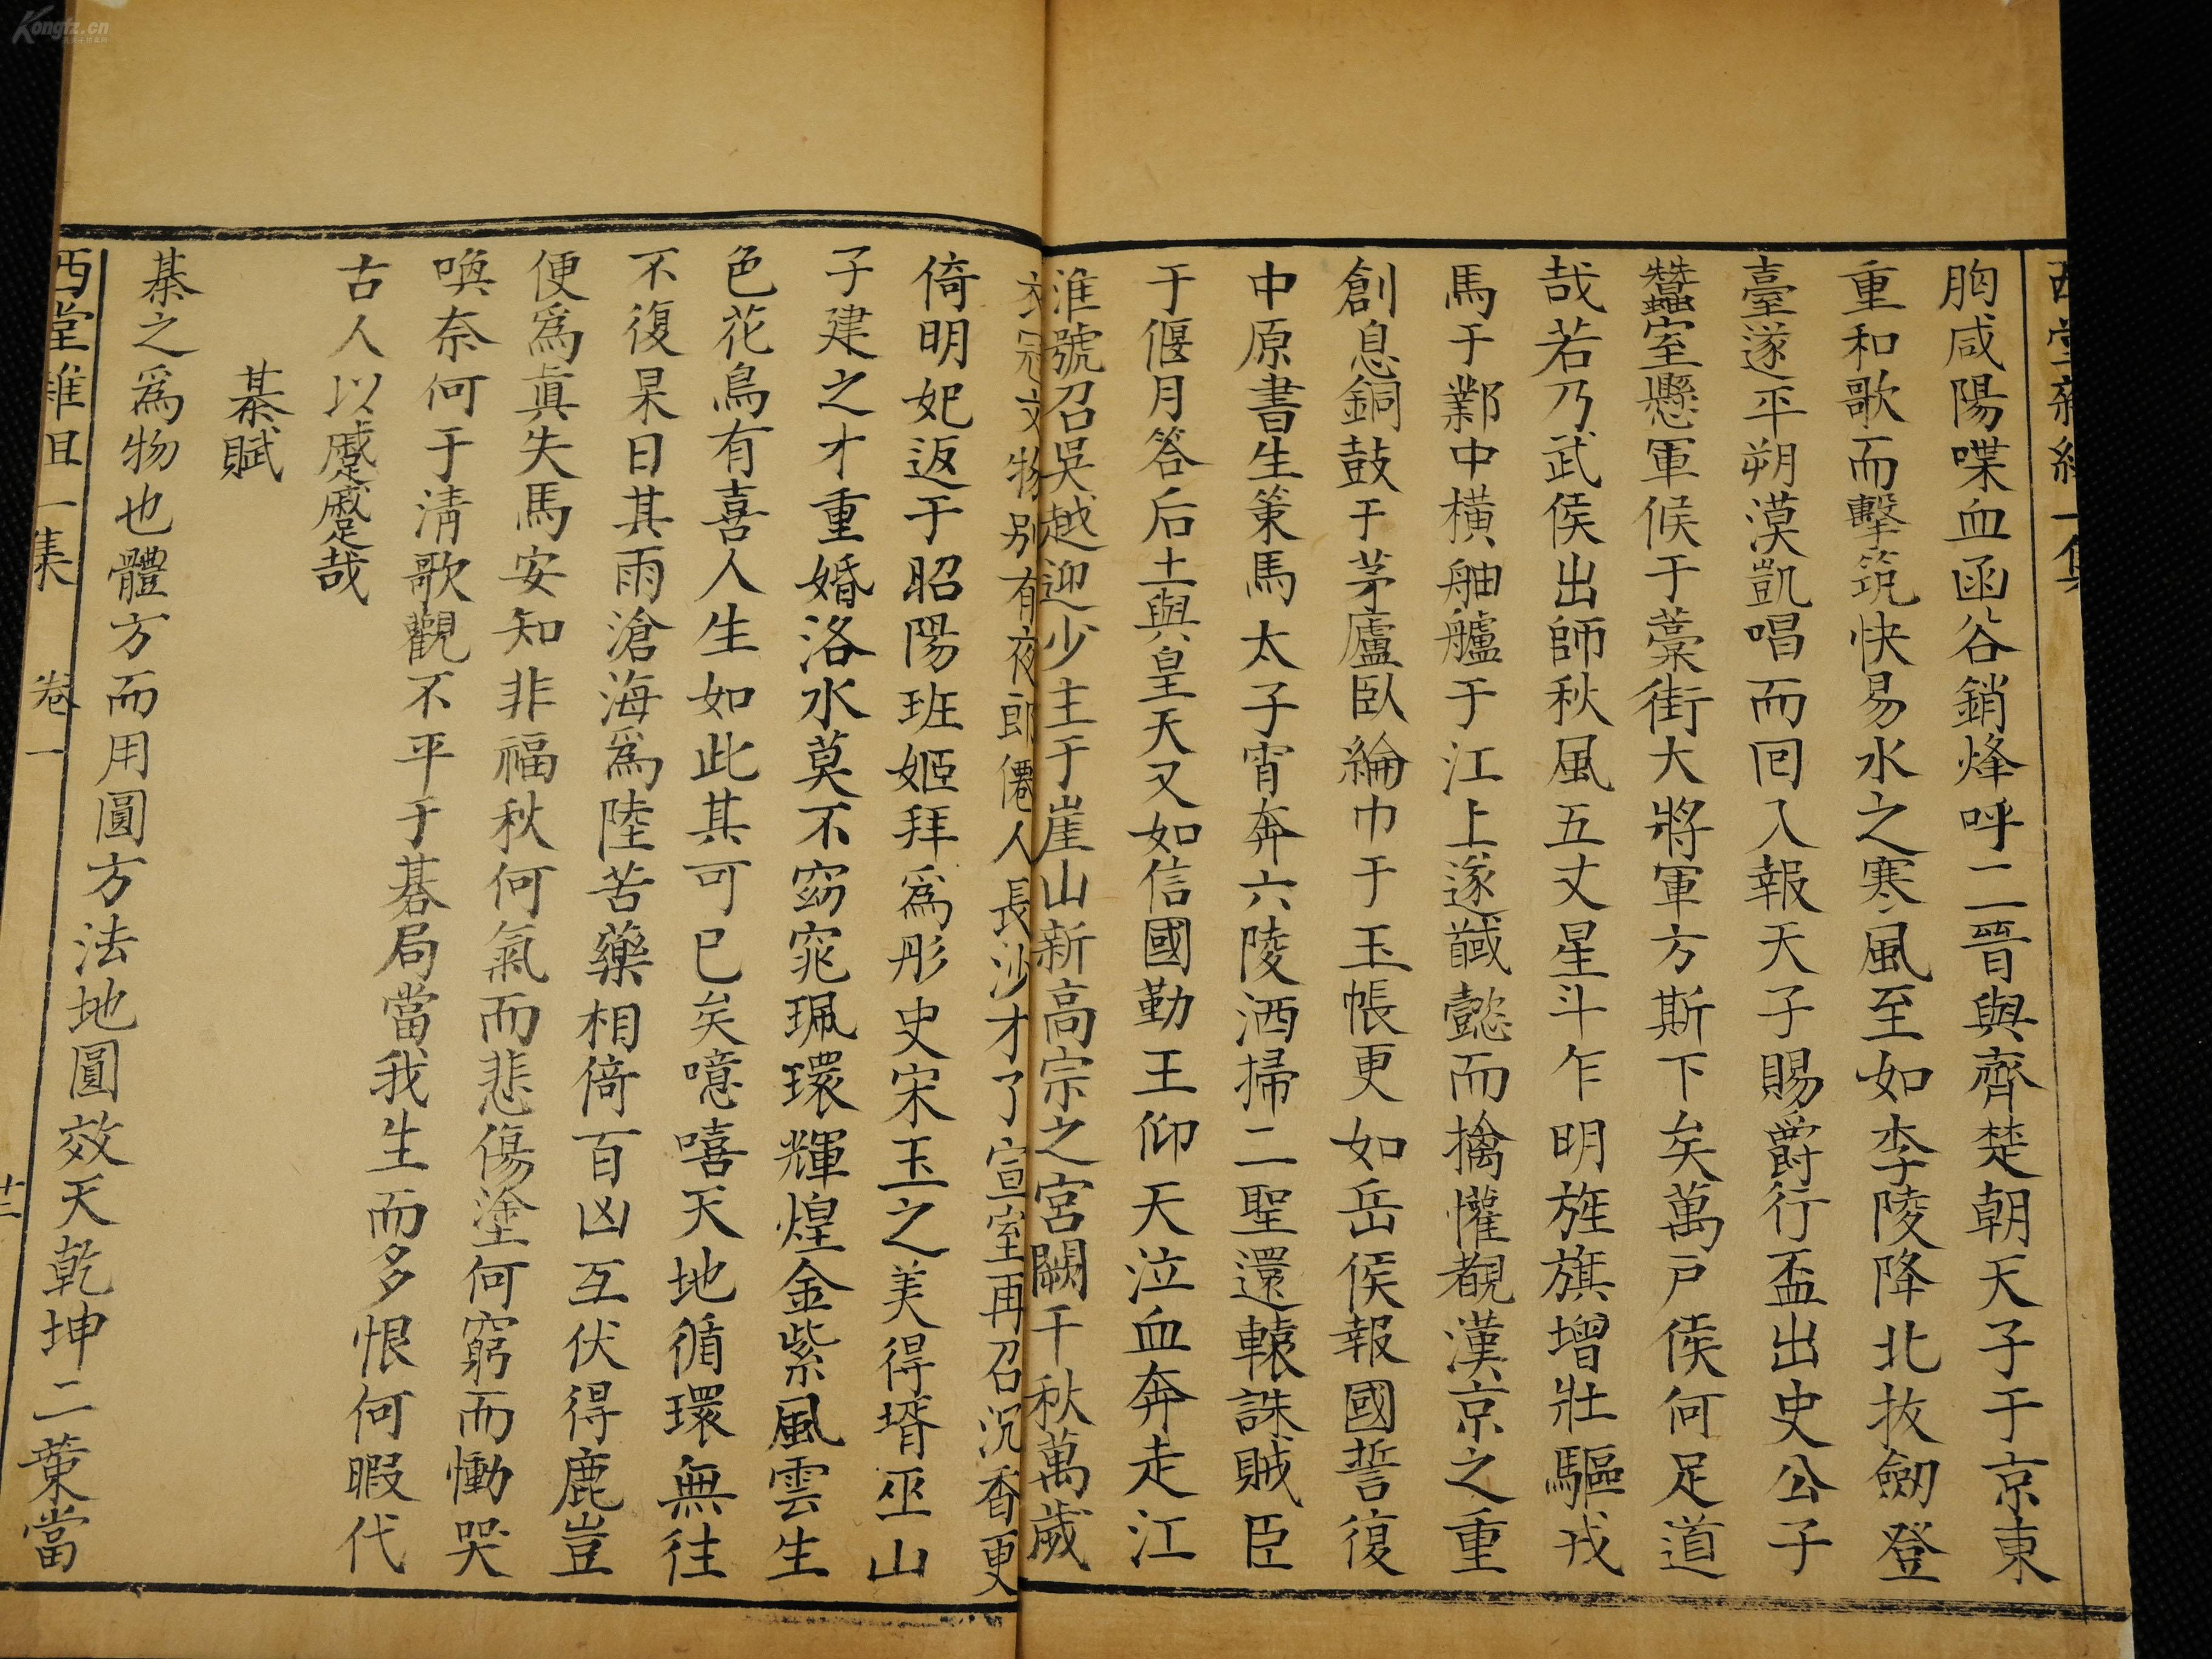 胸咸陽喋血函谷銷烽呼二晉與齊楚朝天子于京東
重和歌而擊筑快易水之寒風至如李陵降北抜劒登
臺遂平朔漠凱唱而囘入報天子賜爵行盃出史公子
蠶室懸軍候于藁街大將軍方斯下矣萬戸侯何足道
哉若乃武侯出師秋風五丈星斗乍明旌旗增壯驅戎
馬于鄴中橫舳艫于江上遂馘懿而擒懽覩漢京之重
創息銅鼓于茅廬臥綸巾于玉帳更如岳侯報國誓復
中原書生策馬太子宵奔六陵洒掃二聖還轅誅賊臣
于偃月答后土與皇天又如信國勤王仰天泣血奔走江
淮號召吳越迎少主于崖山新高宗之宮闕千秋萬歲
衣冠文物别有夜郎僊人長沙才了宣室再召沉香更
倚明妃返于昭陽班姬拜爲彤史宋玉之美得壻巫山
子建之才重婚洛水莫不窈窕珮環輝煌金紫風雲生
色花鳥有喜人生如此其可已矣噫嘻天地循環無往
不復杲日其雨滄海爲陸苦藥相倚百凶互伏得鹿豈
便爲眞失馬安知非福秋何氣而悲傷塗何窮而慟哭
喚奈何于淸歌觀不平于碁局當我生而多恨何暇代
古人以蹙蹙哉
棊賦
棊之爲物也體方而用圓方法地圓效天乾坤二葉當
西堂雜俎一集 卷一 十三
Kongfz.cn